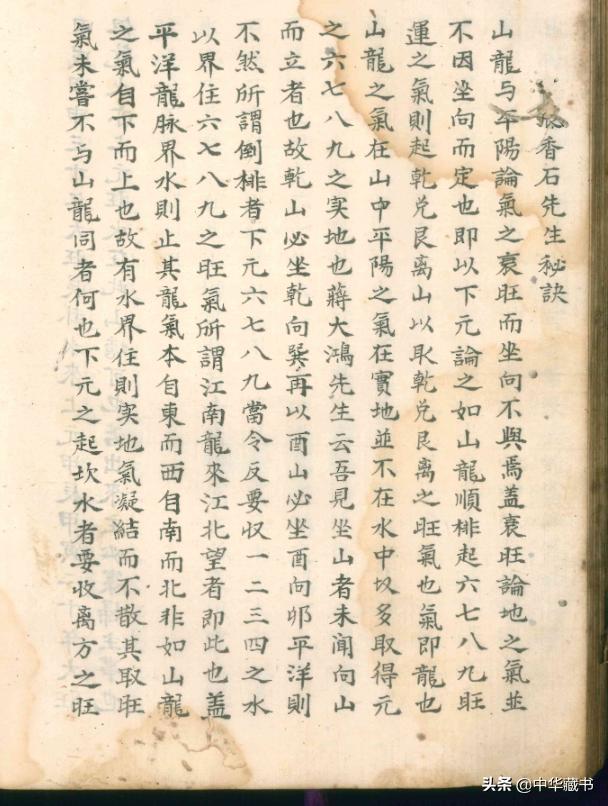 香石先生秘訣
山龍与平陽論氣之衰旺而坐向不與焉蓋衰旺論地之氣並
不因坐向而定也即以下元論之如山龍順排起六七八九旺
運之氣則起乾兌艮离山以取乾兌艮离之旺氣也氣即龍也
山龍之氣在山中平陽之氣在實地並不在水中故多取得元
之六七八九之实地也蔣大鴻先生云吾見坐山者未聞向山
而立者也故乾山必坐乾向巽再以酉山必坐酉向卯平洋則
不然所謂倒排者下元六七八九當令反要収一二三四之水
以界住六七八九之旺氣所謂江南龍來江北望者即此也蓋
平洋龍脉界水則止其龍氣本自東而西自南而北非如山龍
之氣自下而上也故有水界住則实地氣凝結而不散其取旺
氣未嘗不与山龍同者何也下元之起坎水者要収离方之旺
头条 @中华藏书